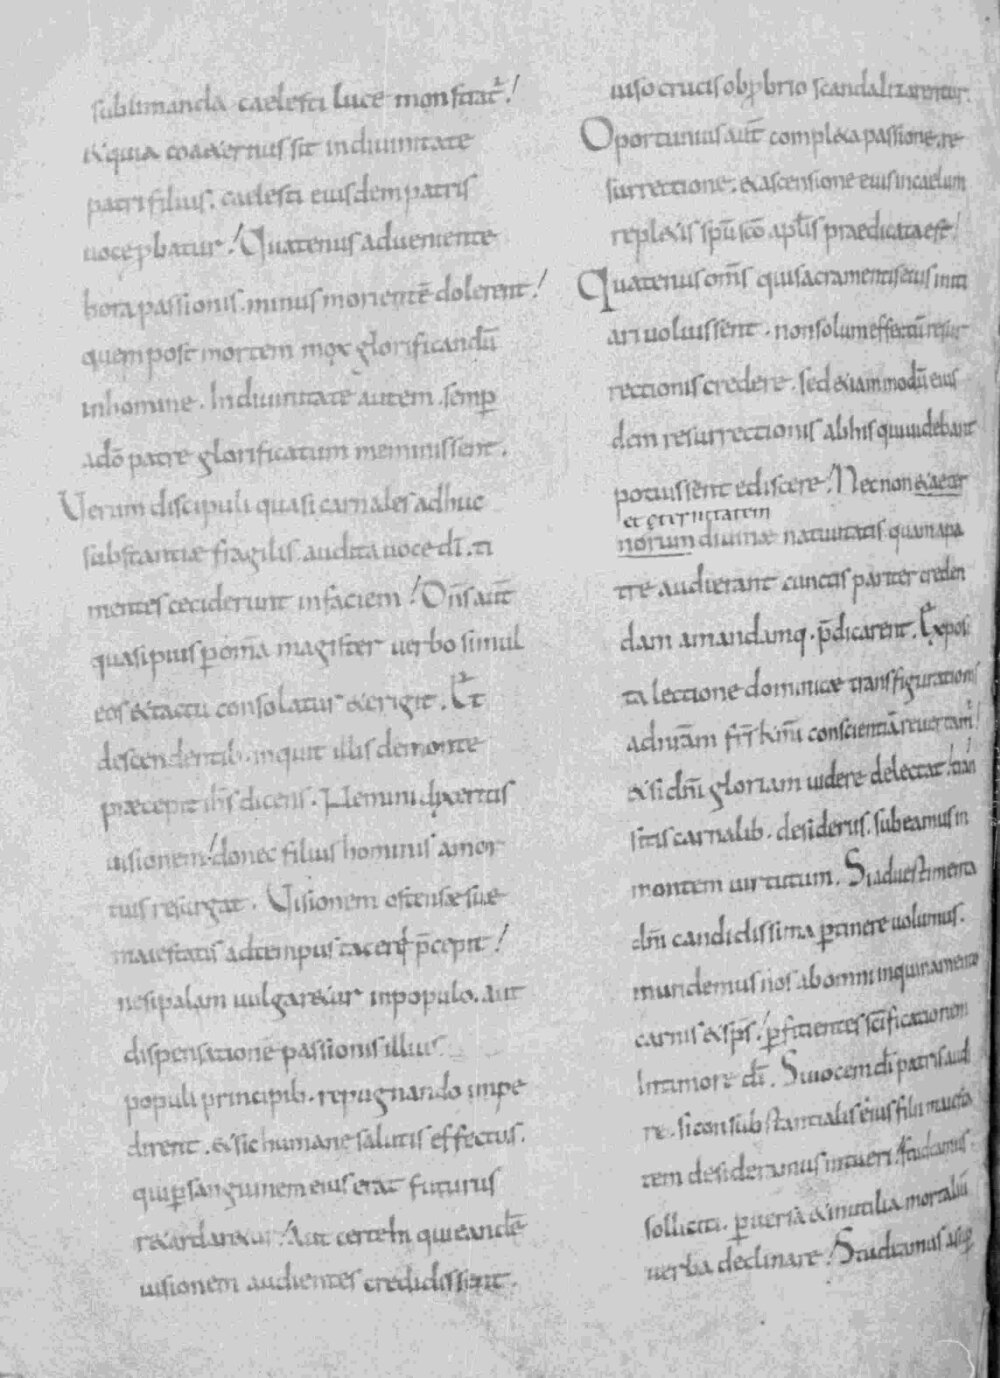 sublimanda caelesti luce monstrat᷑!
&quia coa&ernus sit indiuinitate
patri filius. caelesti eiusdem patris
uoce ꝓbatur! Quatenus adueniente
hora passionis. minus morientē dolerent!
quem post mortem mox glorificandū
inhomine. Indiuinitate autem. semꝑ
adō patre glorificatum meminissent.
Uerum discipuli quasi carnales adhuc
substantiae fragilis. audita uoce dī. ti
mentes ceciderunt infaciem! Dn̄s aūt
quasi pius ꝑ om̄a magister uerbo simul
eos &tactu consolatur &erigit. Et
descendentib. inquit illis demonte
praecepit ih̄s dicens. Nemini dixeritis
uisionem! donec filius hominis amor
tuis resurgat. Uisionem ostensae suae
maiestatis adtempus tacere p̄cepit!
nesi palam uulgar&ur inpopulo. aut
dispensatione passionis illius
populi principib. repugnando impe
dirent. &sic humane salutis effectus.
qui ꝑ sanguinem eius erat futurus
r&ardar&ur! Aut certe hi qui eandē
uisionem audientes credidissent.
uiso crucis obprbrio scandalizarentur.
Oportunius aūt compl&a passione. re
surrectione. &ascensione eius incaelum
repl&is sp̄u sc̄o aplīs praedicata est!
Quatenus om̄s qui sacramentis eius initi
ari uoluissent. non solum effectū resur
rectionis credere. sed &iam modū eius
dem resurrectionis abhis qui uidebant
potuissent ediscere! Necnon &aeter
et &ernitatem
norum diuinae natiuitatis quam apa
tre audierant cunctis pariter creden
dam amandamq. p̄dicarent. Exposi
ta lectione dominicae transfigurationis
adnr̄am fr̄s km̄i conscientiā reuertam᷑!
&si dn̄i gloriam uidere delectat! tran
sitis carnalib. desideriis. subeamus in
montem uirtutum. Si aduestimenta
dn̄i candidissima ꝑtinere uolumus.
mundemus nos abomni inquinamento
carnis &sp̄s! ꝑficientes sc̄ificationem
Intimore dī. Si uocem dī patris audi
re. si consubstantialis eius filii maiesta
tem desideramus intueri! studeamus
solliciti. ꝑuersa &inutilia mortaliū
uerba declinare! Studeamus asuꝑ